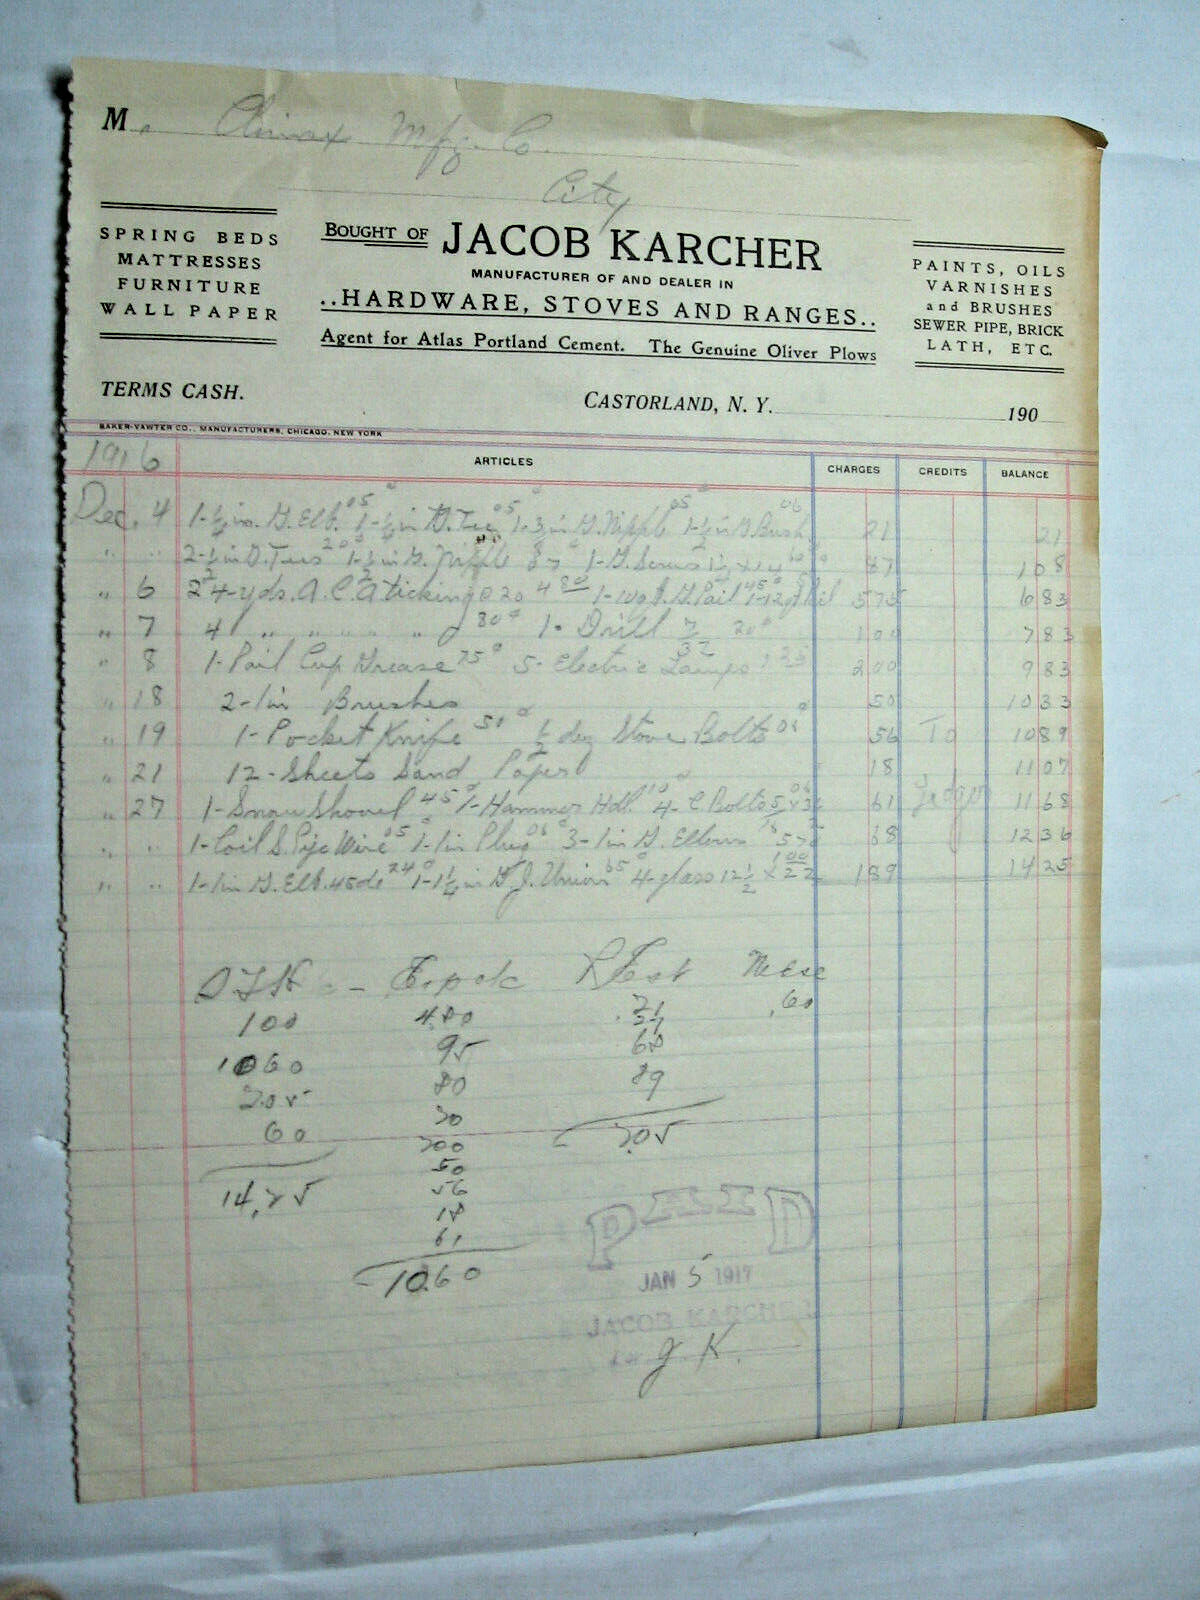 M. Climax Mfg. Co.
City
SPRING BEDS
MATTRESSES
FURNITURE
WALL PAPER
BOUGHT OF JACOB KARCHER
MANUFACTURER OF AND DEALER IN
..HARDWARE, STOVES AND RANGES..
Agent for Atlas Portland Cement. The Genuine Oliver Plows
PAINTS, OILS
VARNISHES
and BRUSHES
SEWER PIPE, BRICK
LATH, ETC.
TERMS CASH.
CASTORLAND, N. Y. 190
BAKER-VAWTER CO., MANUFACTURERS, CHICAGO. NEW YORK
1916 ARTICLES CHARGES CREDITS BALANCE
Dec. 4 1-½ in. G. Elb. 05 1-½ in G. Tee 05 1-½ in G. Nipple 05 1-½ in G. Bush 06 21 21
" " 2-½ in G. Tees 20 1-½ in G. Nipple 1-G. Screws 87 108
" 6 24-yds. A.C.A ticking @ 20 4 80 1-10q G. Pail 45 575 683
" 7 4 " " " " " 80 1- Drill 7/32 20 100 783
" 8 1-Pail Cup Grease 75 5- Electric Lamps 1 25 200 983
" 18 2-1in Brushes 50 1033
" 19 1-Pocket Knife 50 ½ doz Stove Bolts 06 56 To 1089
" 21 12-Sheets Sand Paper 18 1107
" 27 1-Snow Shovel 45 1-Hammer Hdl. 10 4- C Bolts 06 61 Ledger 1168
" " 1-Coil S. Pipe Wire 05 1-1in Plug 06 3-1in G. Elbows 57 68 1236
" " 1-1in G. Elb. 45de 24 1-1¼ in G. J. Union 65 4-glass 12½ x 22 1 00 189 1425
100
1060
205
60
14,25
4.80
95
80
20
200
50
56
18
61
10.60
21
68
89
2.05
.60
PAID
JAN 5 1917
JACOB KARCHER
J. K.